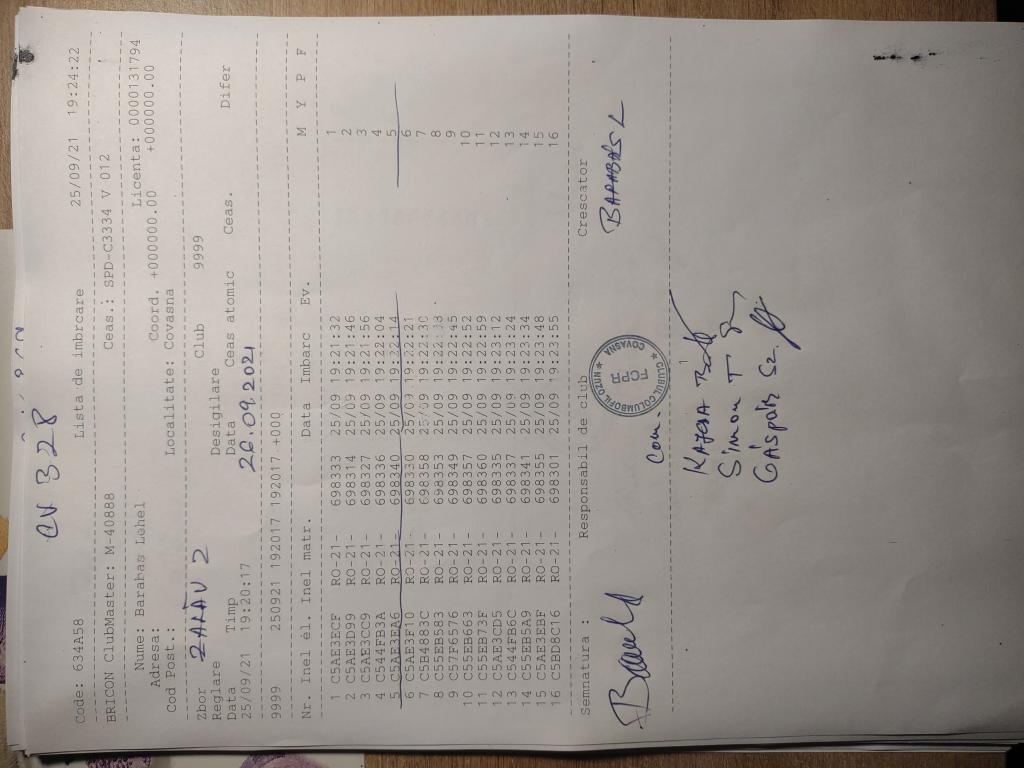 CV B328
Code: 634A58 Lista de imbrcare 25/09/21 19:24:22
BRICON ClubMaster: M-40888 Ceas.: SPD-C3334 V 012
Nume: Barabas Lehel Licenta: 0000131794
Adresa: Coord. +000000.00 +000000.00
Cod Post.: Localitate: covasna
Zbor ZALĂU 2 Club 9999
Reglare Desigilare
Data Timp Data Ceas atomic Ceas. Difer
25/09/21 19:20:17 26.09.2021
9999 250921 192017 192017 +000
Nr. Inel el. Inel matr. Data Imbarc Ev. M Y P F
1 C5AE3ECF RO-21- 698333 25/09 19:21:32 1
2 C5AE3D99 RO-21- 698314 25/09 19:21:46 2
3 C5AE3CC9 RO-21- 698327 25/09 19:21:56 3
4 C544FB3A RO-21- 698336 25/09 19:22:04 4
5 C5AE3EA6 RO-21- 698340 25/09 19:22:14 5
6 C5AE3F10 RO-21- 698330 25/09 19:22:21 6
7 C5B4883C RO-21- 698358 25/09 19:22:30 7
8 C55EB583 RO-21- 698353 25/09 19:22:38 8
9 C57F6576 RO-21- 698349 25/09 19:22:45 9
10 C55EB663 RO-21- 698357 25/09 19:22:52 10
11 C55EB73F RO-21- 698360 25/09 19:22:59 11
12 C5AE3CD5 RO-21- 698335 25/09 19:23:12 12
13 C544FB6C RO-21- 698337 25/09 19:23:24 13
14 C55EB5A9 RO-21- 698341 25/09 19:23:34 14
15 C5AE3EBF RO-21- 698355 25/09 19:23:48 15
16 C5BD8C16 RO-21- 698301 25/09 19:23:55 16
Semnatura : Responsabil de club Crescator
BARABÁS L
CLUBUL COLUMBOFIL OZUN
FCPR
COVASNA
com.
Simon T
Gáspár Sz.